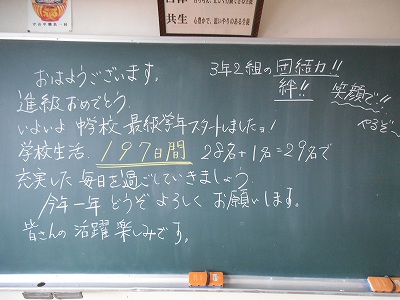 共生 心豊かで、思いやりのある生徒
おはようございます。
進級おめでとう。
いよいよ 中学校 最級学年スタートしましたョ!
学校生活、197日間 28名+1名=29名で
充実した 毎日を過ごしていきましょう
今年一年 どうぞ よろしく お願いします。
皆さんの 活躍 楽しみです。
3年2組の団結力!!
絆!!
笑顔で!!
やるぞ〜